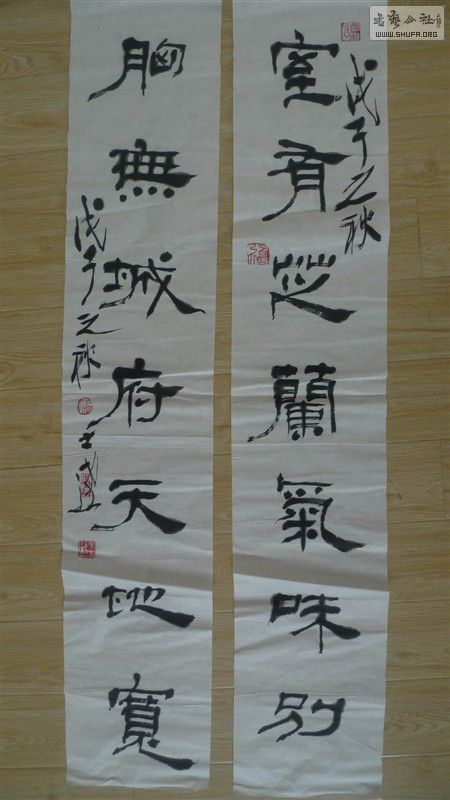 室有芝蘭氣味別
戊子之秋
胸無城府天地寬
戊子之秋
書藝公社
WWW.SHUFA.ORG